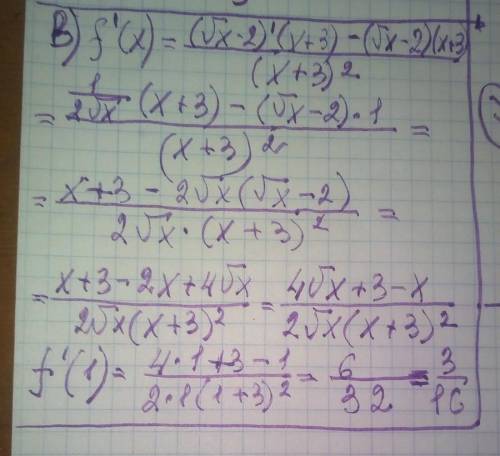 B) f'(x) = ((√x-2)'(x+3) - (√x-2)(x+3)) / (x+3)²
= (1/(2√x) (x+3) - (√x-2)·1) / (x+3)² =
= (x+3 - 2√x(√x-2)) / (2√x·(x+3)²) =
= (x+3-2x+4√x) / (2√x(x+3)²) = (4√x+3-x) / (2√x(x+3)²)
f'(1) = (4·1+3-1) / (2·1(1+3)²) = 6/32 = 3/16